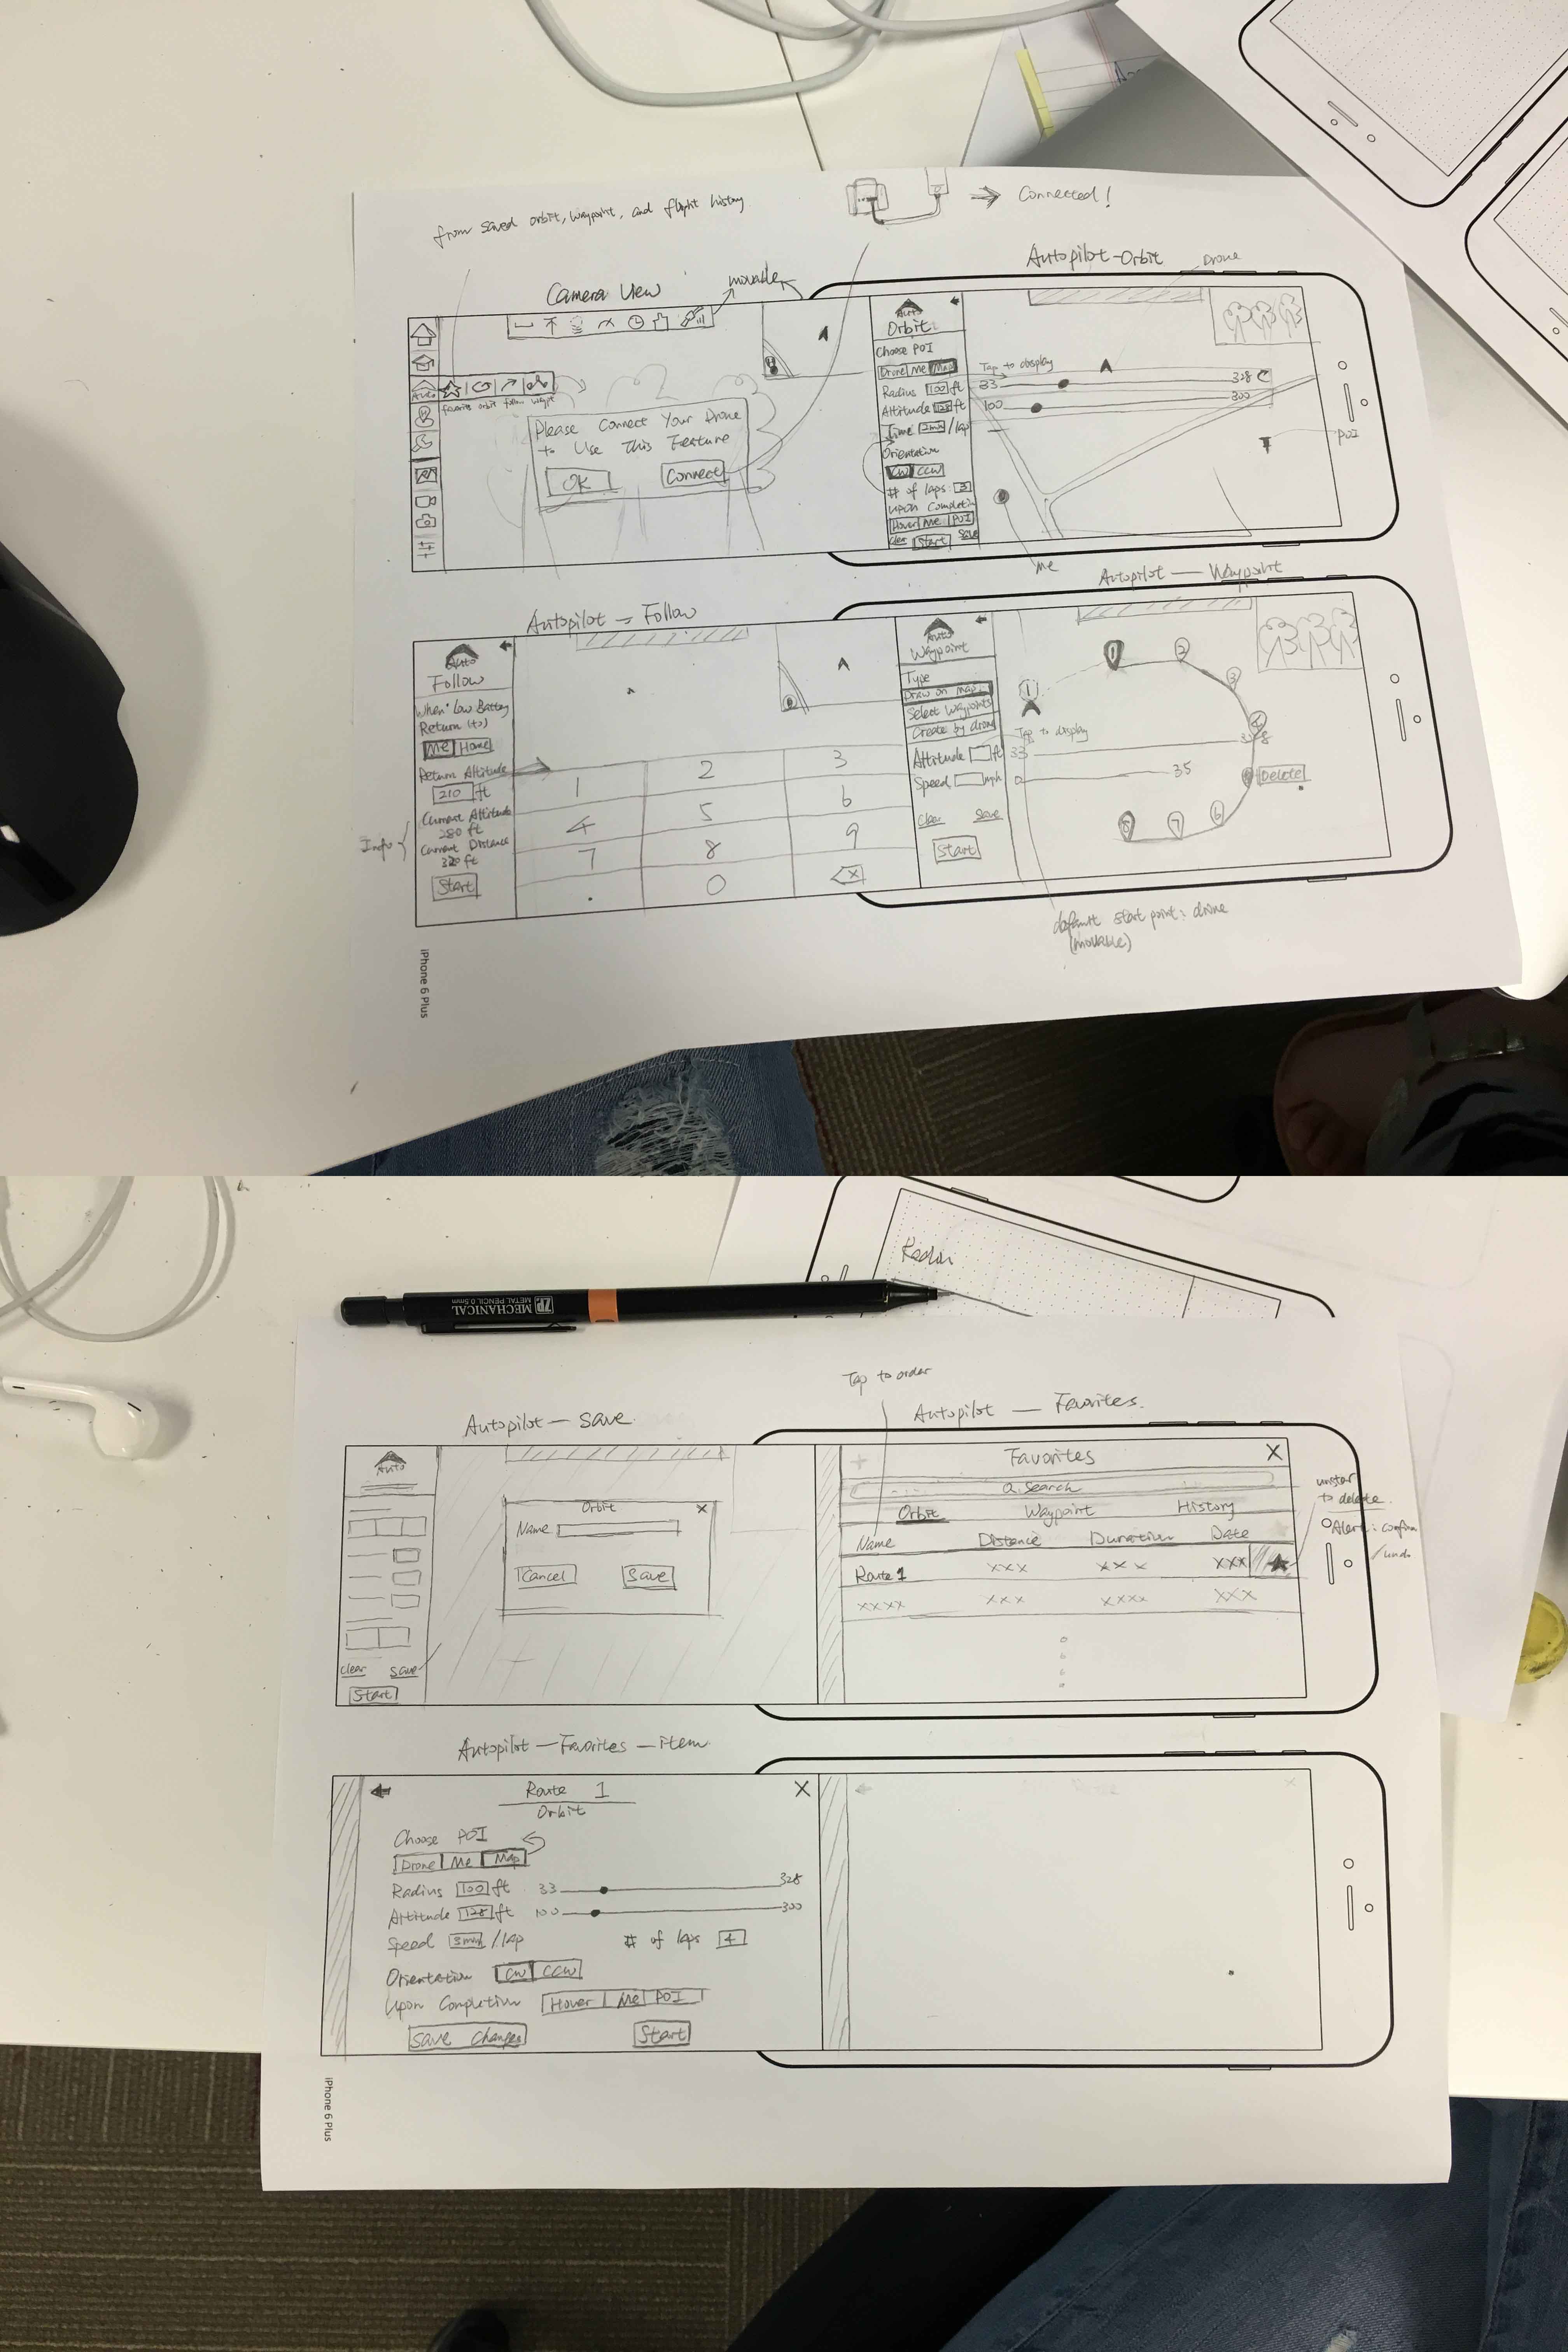 from saved orbit, waypoint, and flight history
Connected!
Camera View
movable
Autopilot-Orbit
Drone
Auto
favorite orbit follow waypt
Please Connect Your Drone
to Use This Feature
OK
Connect
Auto
Orbit
Choose POI
Drone Me Map
Radius 100 ft
Altitude 128 ft
Time 2min /lap
Orientation
CW CCW
# of laps 3
upon Completion
Hover Me POI
clear Start Save
Tap to display
33
328
100
300
POI
me
Autopilot - Follow
Auto
Follow
When Low Battery
Return (to)
Me Home
Return Altitude
210 ft
Info
Current Altitude
280 ft
Current Distance
320 ft
Start
1 2 3
4 5 6
7 8 9
. 0 x
Autopilot — Waypoint
Auto
Waypoint
Type
Draw on Map
Select Waypoints
Create by drone
Altitude ft
Speed mph
clear save
Start
Tap to display
33
0
35
1
1
2
3
4
6
7
8
Delete
default start point: drone
(movable)
iPhone 6 Plus
MECHANICAL
METAL PENCIL 0.5mm
ZP
Autopilot — Save
Auto
Orbit X
Name
Cancel Save
clear save
Start
Tap to order
Autopilot — Favorites
Favorites X
search
Orbit Waypoint History
Name Distance Duration Date
Route 1 xxx xxx xxx
xxxx xxx xxxx xxx
unstar
to delete
Alert: confirm
/undo
Autopilot — Favorites — item
Route 1 X
Orbit
Choose POI
Drone Me Map
Radius 100 ft 33 328
Altitude 128 ft 100 300
Speed 3min /lap # of laps 4
Orientation CW CCW
Upon Completion Hover Me POI
Save Changes Start
iPhone 6 Plus